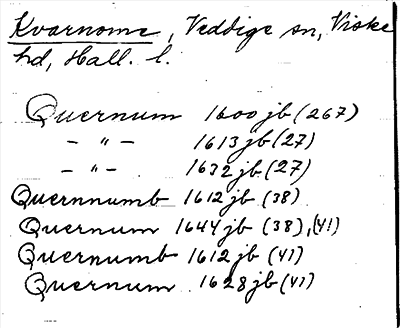 Kvarnome, Veddige sn, Viske
hd, Hall. l.
Quernum 1600 jb (267)
- " - 1613 jb (27)
- " - 1632 jb (27)
Quernnumb 1612 jb (38)
Quernum 1644 jb (38), (41)
Quernumb 1612 jb (41)
Quernum 1628 jb (41)